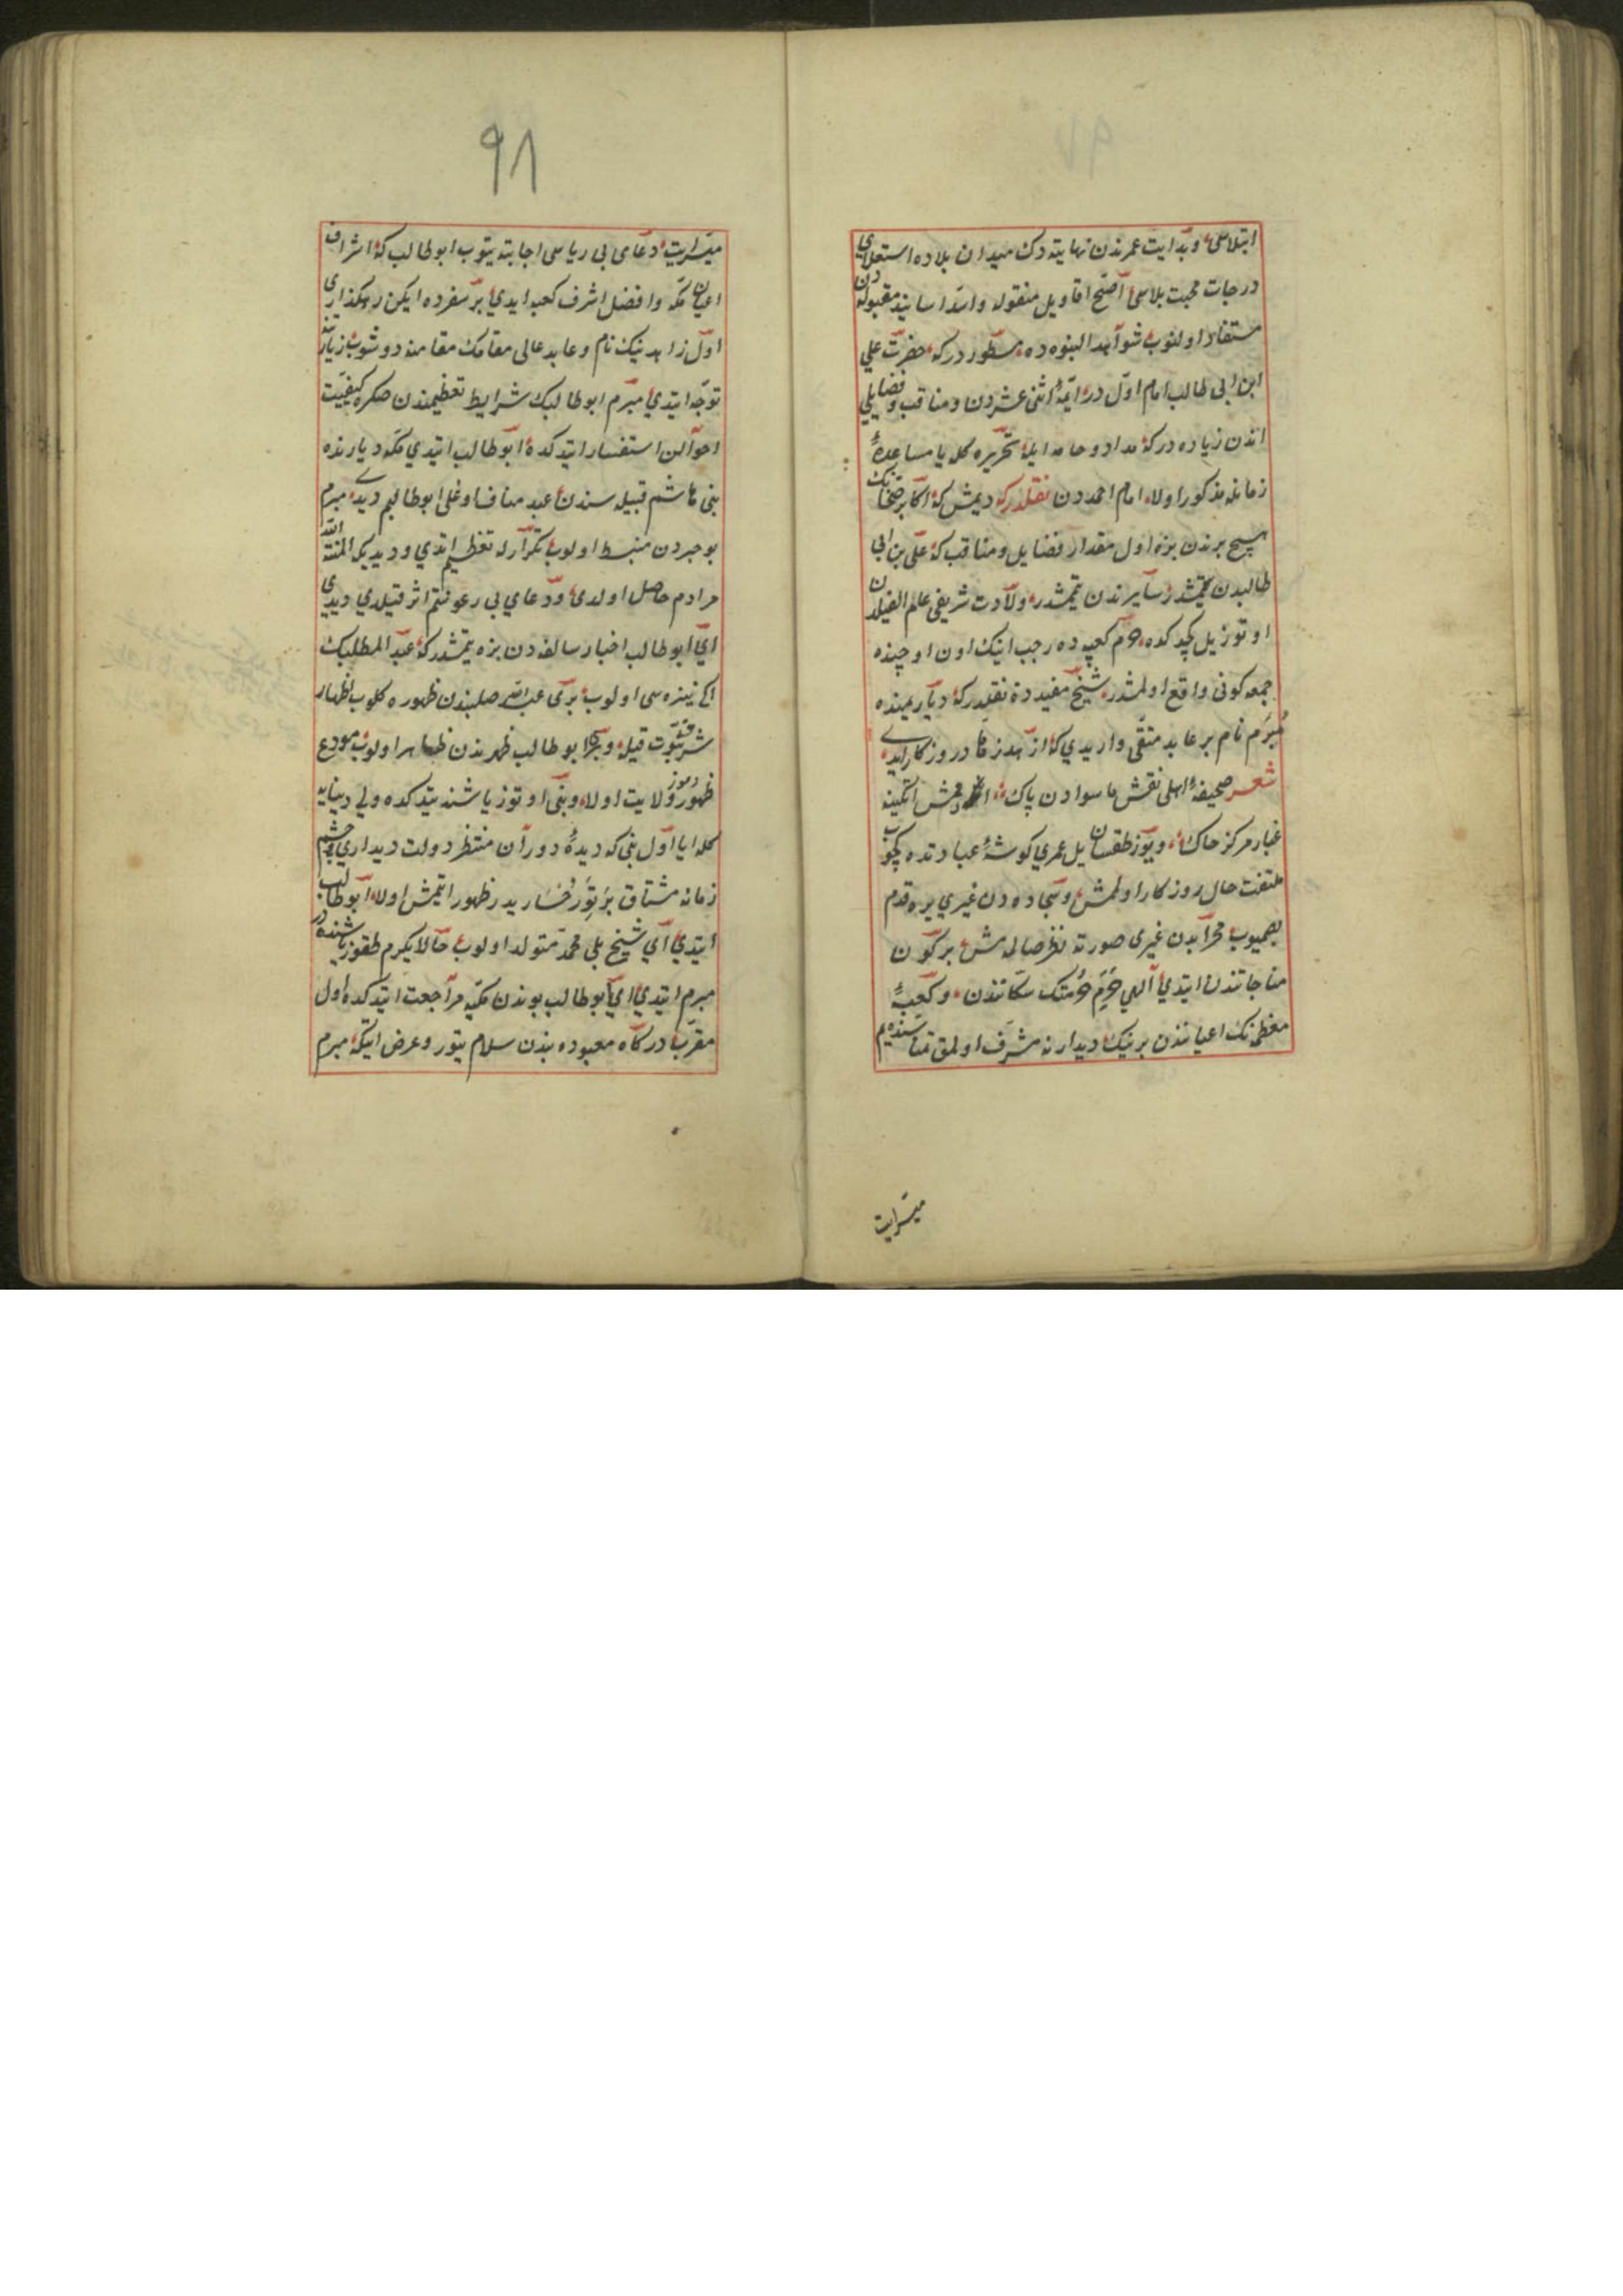 ابتلاسی و بدایت عمرندن نهایتدك میدان بلاده استعلای
درجات محبت بلاسی اصح اقاویل منقوله و اسد اسانید مقبوله دن
مستفاد اولنوب شواهد النبوه ده مسطوردركه حضرت علی
ابن ابی طالب امام اولدر ائمهٔ اثنی عشردن و مناقب و فضایلی
اندن زیاده دركه مداد و خامه ایله تحریره كله یا مساعدهٔ
زمانله مذكور اولا امام احمددن نقلدركه دیمش كه اكابر صحابه نك
هیچ برندن بزه اول مقدار فضایل و مناقب كه علی بن ابی
طالبدن یتمشدر سایرندن یتمشدر ولادت شریفی عام الفیلدن
اوتوز یل كچدكده حرم كعبه ده رجب اینك اون اوچنده
جمعه كونی واقع اولمشدر شیخ مفیددن نقلدركه دیار یمنده
مبرم نام بر عابد متقی وار یدی كه ازهد زهاد روزكار ایدی
شعر صحیفهٔ املی نقش ماسوادن پاك
غبار مركز خاك و یوز طقسان یل عمری كوشهٔ عبادتده كچوب
ملتفت حال روزكار اولمش و سجاده دن غیری یره قدم
بصمیوب محرابدن غیری صورته نظر صالمه مش بر كون
مناجاتندن ایتدی الهی حریم حرمتك سكانندن و كعبهٔ
معظمه نك اعیانندن برینك دیدارنه مشرف اولمق تمناسنده یم
میسر ایت
٩٨
میسر ایت دعای بی ریاسی اجابته یتوب ابوطالب كه اشراف
اعیان مكه و افضل اشرف كعبه ایدی بر سفرده ایكن رهكذاری
اول زاهد نیك نام و عابد عالی مقامك مقامنه دوشوب زیارتنه
توجه ایتدی مبرم ابوطالبك شرایط تعظیمندن صكره كیفیت
احوالن استفسار ایتدكده ابوطالب ایتدی مكه دیارنده
بنی هاشم قبیله سندن عبد مناف اوغلی ابوطالبم دیدی مبرم
بو خبردن منبسط اولوب تكرارله تعظیم ایتدی و دیدیكه المنة لله
مرادم حاصل اولدی و دعای بی رعونتم اثر قیلدی دیدی
ای ابوطالب اخبار سالفه دن بزه یتمشدركه عبد المطلبك
ایكی نبیره سی اولوب بری عبد الله صلبندن ظهوره كلوب اظهار
شرف نبوت قیله و بری ابوطالب ظهرندن ظاهر اولوب مودع
ظهور رموز ولایت اولا و نبی اوتوز یاشنه یتدكده ولی دنیایه
كله ایا اول نبی كه دیدهٔ دوران منتظر دولت دیداری و چشم
زمانه مشتاق پرتو رخساریدر ظهور ایتمش اولا ابوطالب
ایتدی ای شیخ بلی محمد متولد اولوب حالا یكرم طقوز یاشنده در
مبرم ایتدی ای ابوطالب بوندن مكیه مراجعت ایتدكده اول
مقرب دركاه معبوده بندن سلام یتور و عرض ایتكه مبرم